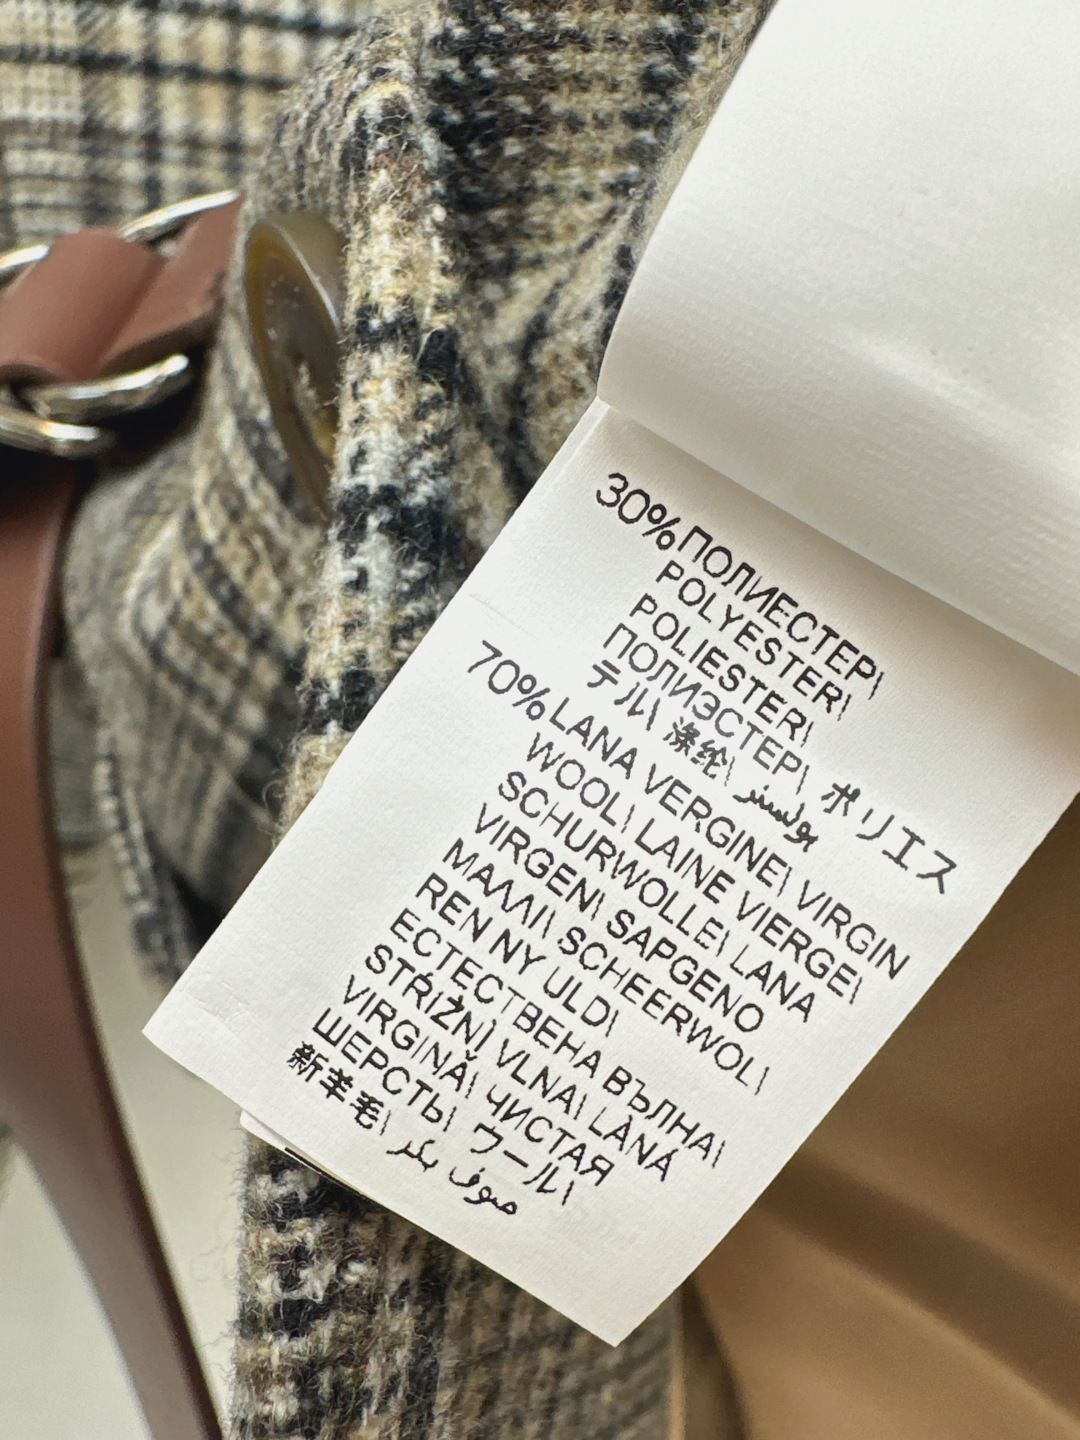 30% ПОЛИЕСТЕР\
POLYESTER\
POLIESTER\
ПОЛИЭСТЕР\ ポリエス
テル\ 涤纶\ بوليستر
70% LANA VERGINE\ VIRGIN
WOOL\ LAINE VIERGE\
SCHURWOLLE\ LANA
VIRGEN\ SAPGENO
ΜΑΛΛΙ\ SCHEERWOL\
REN NY ULD\
ЕСТЕСТВЕНА ВЪЛНА\
STŘIŽNÍ VLNA\ LÂNÁ
VIRGINĂ\ ЧИСТАЯ
ШЕРСТЬ\ ウール\
新羊毛\ صوف بكر